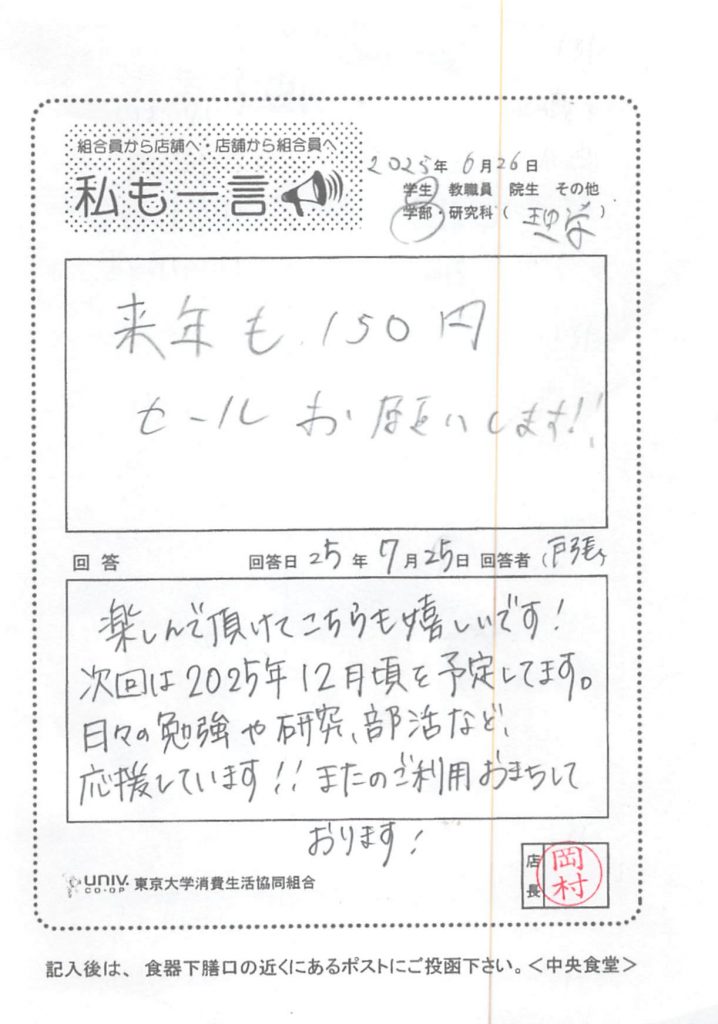 組合員から店舗へ・店舗から組合員へ
私も一言
2025年6月26日
学生 教職員 院生 その他
学部・研究科（理学）
来年も150円
セールお願いします!!
回答 回答日25年7月25日 回答者（戸張）
楽しんで頂けてこちらも嬉しいです！
次回は2025年12月頃を予定してます。
日々の勉強や研究、部活など、
応援しています!!またのご利用おまちして
おります!
UNIV. CO-OP 東京大学消費生活協同組合
店長 岡村
記入後は、食器下膳口の近くにあるポストにご投函下さい。＜中央食堂＞